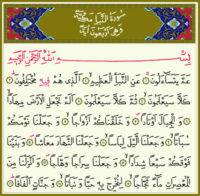 سُورَةُ النَّبَإِ مَكِّيَّةٌ
وَهِيَ أَرْبَعُونَ آيَةً
بِسْمِ اللَّهِ الرَّحْمَٰنِ الرَّحِيمِ
عَمَّ يَتَسَاءَلُونَ ۝ عَنِ النَّبَإِ الْعَظِيمِ ۝ الَّذِي هُمْ فِيهِ مُخْتَلِفُونَ ۝
كَلَّا سَيَعْلَمُونَ ۝ ثُمَّ كَلَّا سَيَعْلَمُونَ ۝ أَلَمْ نَجْعَلِ الْأَرْضَ مِهَادًا ۝
وَالْجِبَالَ أَوْتَادًا ۝ وَخَلَقْنَاكُمْ أَزْوَاجًا ۝ وَجَعَلْنَا نَوْمَكُمْ
سُبَاتًا ۝ وَجَعَلْنَا اللَّيْلَ لِبَاسًا ۝ وَجَعَلْنَا النَّهَارَ مَعَاشًا ۝ وَبَنَيْنَا
فَوْقَكُمْ سَبْعًا شِدَادًا ۝ وَجَعَلْنَا سِرَاجًا وَهَّاجًا ۝ وَأَنْزَلْنَا مِنَ
الْمُعْصِرَاتِ مَاءً ثَجَّاجًا ۝ لِنُخْرِجَ بِهِ حَبًّا وَنَبَاتًا ۝ وَجَنَّاتٍ أَلْفَافًا ۝